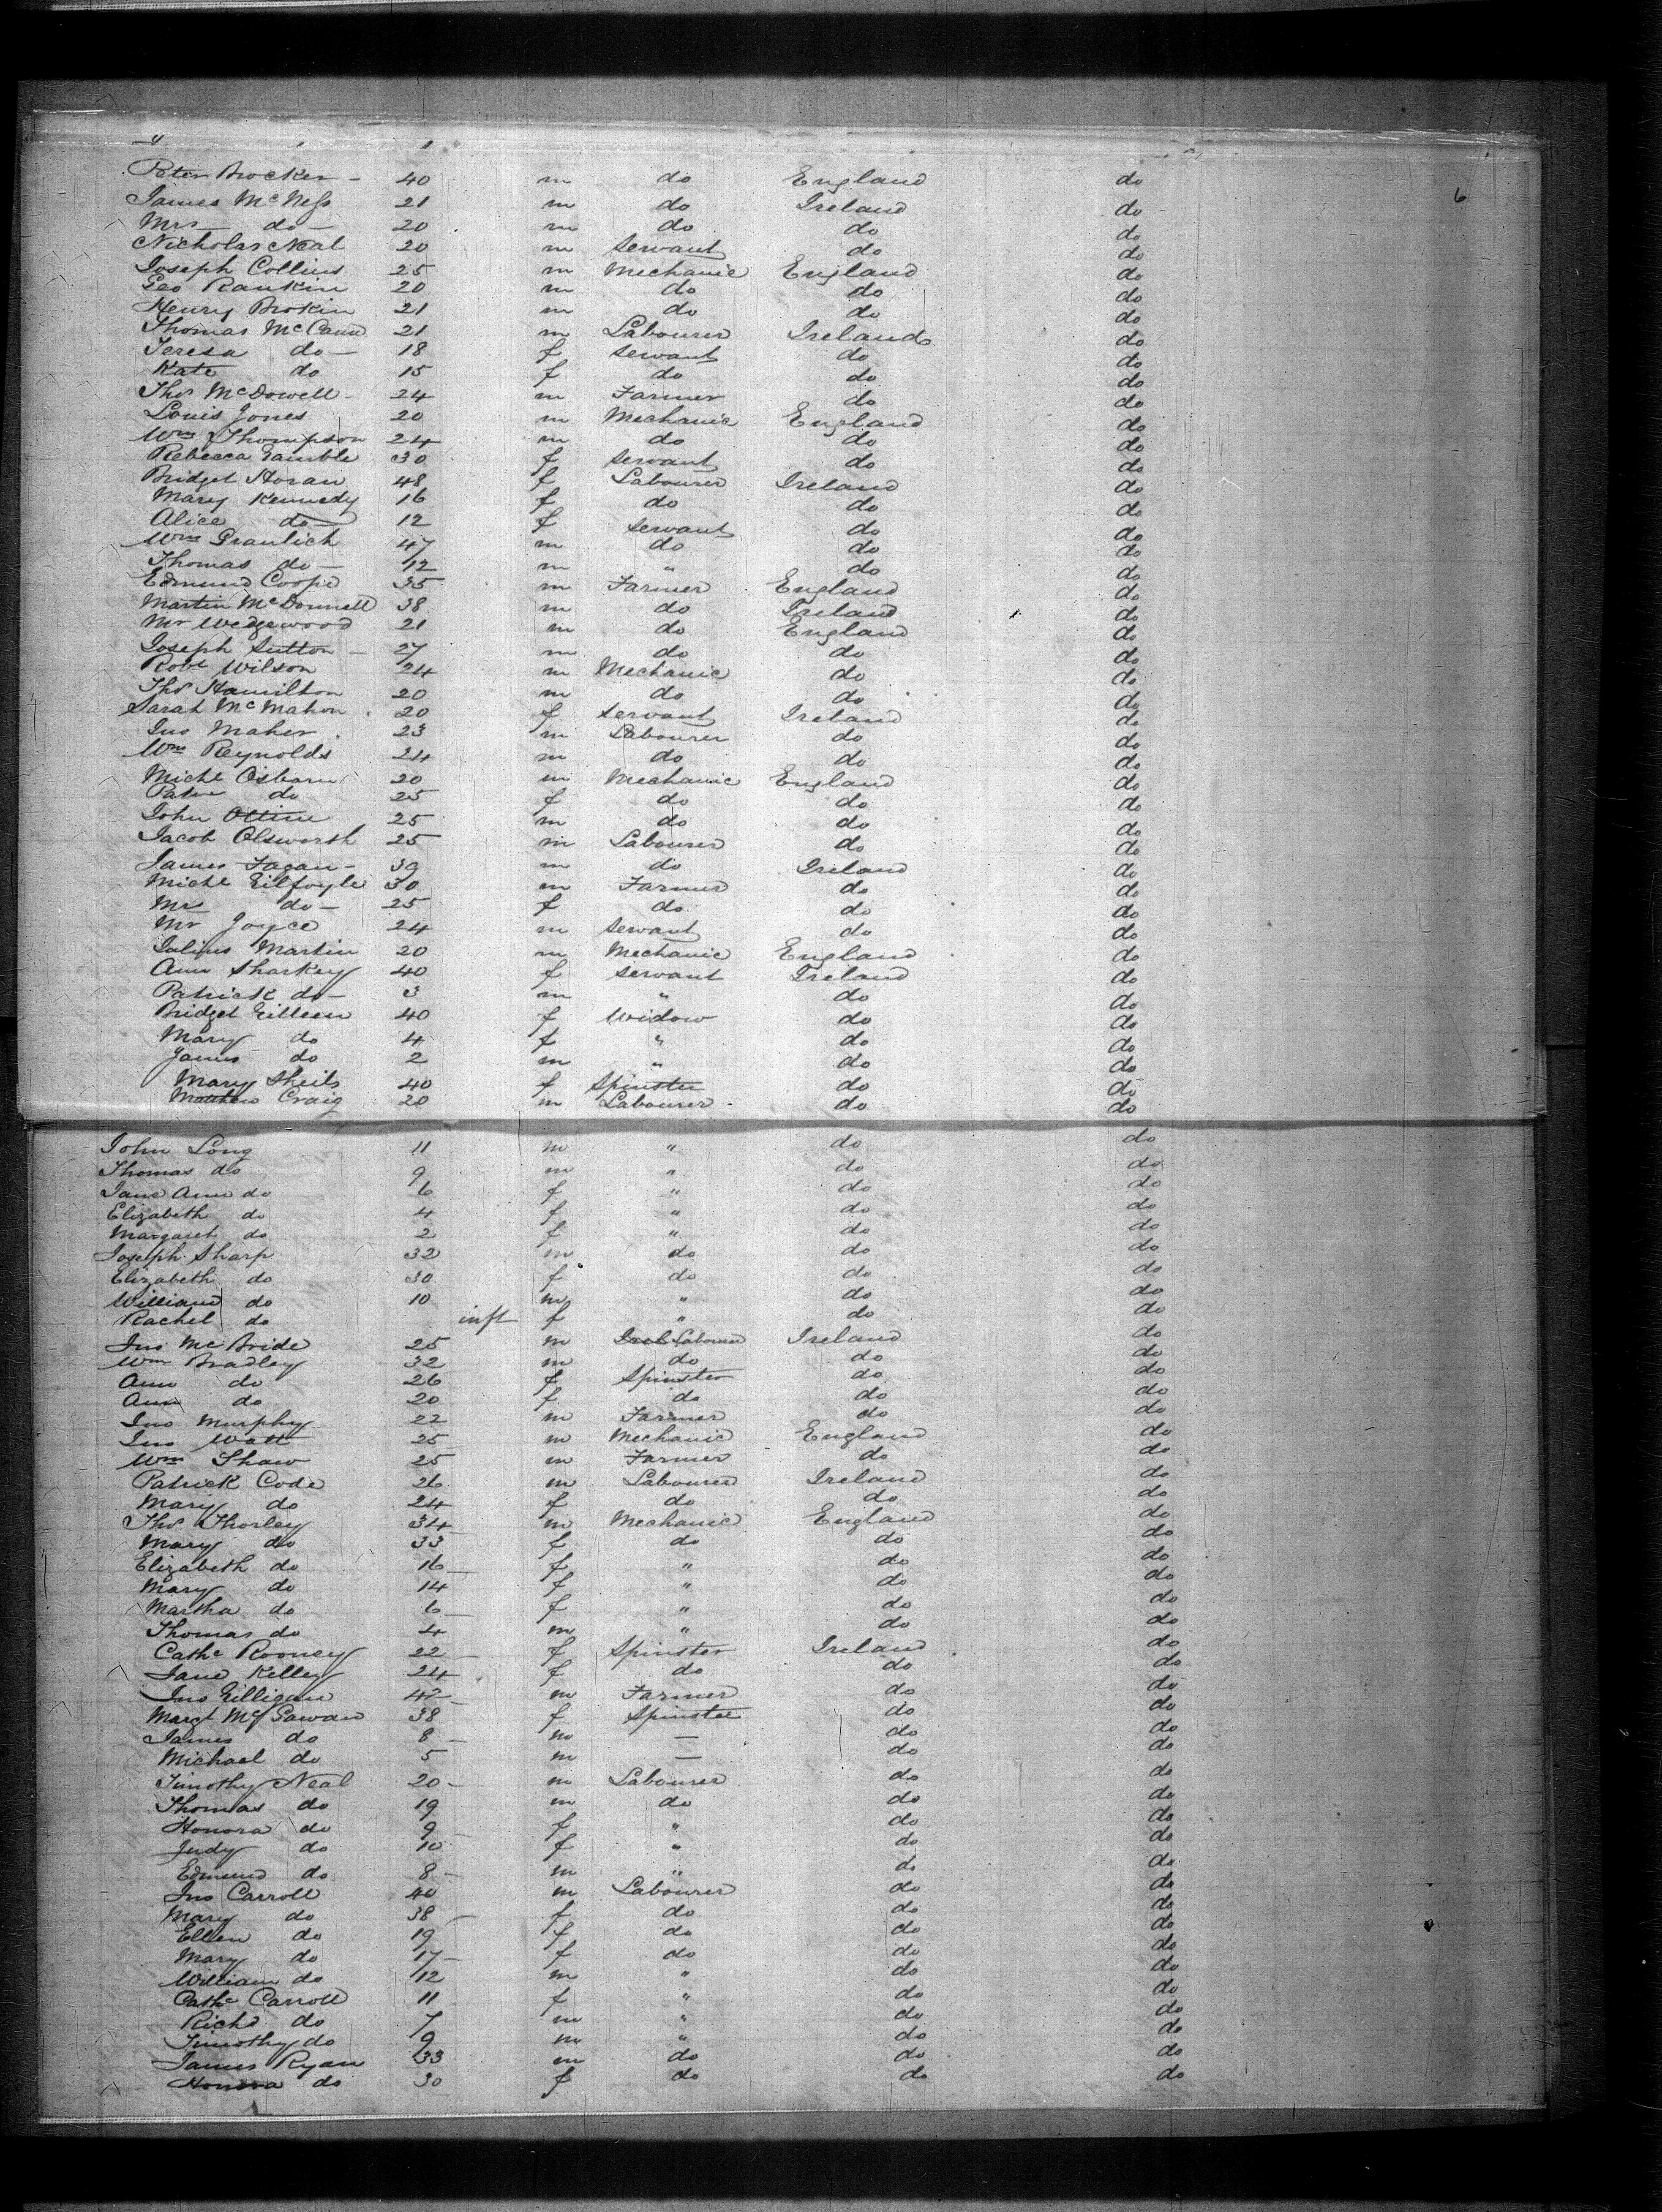 6
Peter Brocker - 40 m do England do
James McNess 21 m do Ireland do
Mrs do - 20 m do do do
Nicholas Neal 20 m Servant do do
Joseph Collins 25 m Mechanic England do
Geo Rankin 20 m do do do
Henry Brokin 21 m do do do
Thomas McCann 21 m Labourer Ireland do
Teresa do - 18 f Servant do do
Kate do 15 f do do do
Thos McDowell - 24 m Farmer do do
Louis Jones 20 m Mechanic England do
Wm Thompson 24 m do do do
Rebecca Gamble 30 f Servant do do
Bridget Horan 48 f Labourer Ireland do
Mary Kennedy 16 f do do do
Alice do - 12 f Servant do do
Wm 47 m do do do
Thomas do - 12 m " do do
Edmund 35 m Farmer England do
Martin McDonnell 38 m do Ireland do
Mr Wedgewood 21 m do England do
Joseph Sutton - 27 m do do do
Robt Wilson 24 m Mechanic do do
Thos Hamilton 20 m do do do
Sarah McMahon 20 f Servant Ireland do
Jno Maher 23 m Labourer do do
Wm Reynolds 24 m do do do
Michl Osborn 20 m Mechanic England do
do 25 f do do do
John 25 m do do do
Jacob Olsworth 25 m Labourer do do
James Fagan - 39 m do Ireland do
Michl Gilfoyle 30 m Farmer do do
Mrs do - 25 f do do do
Mr Joyce 24 m Servant do do
Julius Martin 20 m Mechanic England do
Ann Sharkey 40 f Servant Ireland do
Patrick do - 3 m " do do
Bridget Gilleen 40 f Widow do do
Mary do 4 f " do do
James do 2 m " do do
Mary Sheils 40 f Spinster do do
Matthew Craig 20 m Labourer do do
John Long 11 m " do do
Thomas do 9 m " do do
Jane Ann do 6 f " do do
Elizabeth do 4 f " do do
Margaret do 2 f " do do
Joseph Sharp 32 m do do do
Elizabeth do 30 f do do do
William do 10 m " do do
Rachel do inft f " do do
Jno McBride 25 m Labourer Ireland do
Wm Bradley 32 m do do do
Ann do 26 f Spinster do do
Ann do 20 f do do do
Jno Murphy 22 m Farmer do do
Jno Watt 25 m Mechanic England do
Wm Shaw 25 m Farmer do do
Patrick Code 26 m Labourer Ireland do
Mary do 24 f do do do
Thos Thorley 34 m Mechanic England do
Mary do 33 f do do do
Elizabeth do 16 f " do do
Mary do 14 f " do do
Martha do 6 f " do do
Thomas do 4 m " do do
Cathe Rooney 22 f Spinster Ireland do
Jane Kelley 24 f do do do
Jno Gilligan 42 m Farmer do do
Margt McGawan 38 f Spinster do do
James do 8 - m — do do
Michael do 5 m — do do
Timothy Neal 20 - m Labourer do do
Thomas do 19 m do do do
Honora do 9 f " do do
Judy do 10 f " do do
Edmund do 8 - m " do do
Jno Carroll 40 m Labourer do do
Mary do 38 - f do do do
Ellen do 19 f do do do
Mary do 17 - f do do do
William do 12 m " do do
Cathe Carroll 11 f " do do
Richd do 7 m " do do
Timothy do 9 m " do do
James Ryan 33 m do do do
Honora do 30 f do do do